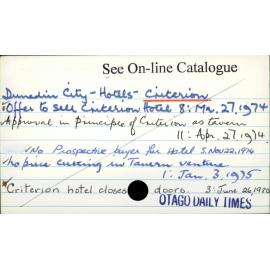 See On-line Catalogue
Dunedin City - Hotels - Criterion
Offer to sell Criterion Hotel 8: Mr. 27, 1974
Approval in principle of Criterion as tavern
11: Apr. 27, 1974.
No Prospective buyer for Hotel 5. Nov 22. 1974
No price cutting in Tavern venture
1: Jan. 3, 1975
Criterion hotel closes doors. 3: June 26, 1980
OTAGO DAILY TIMES